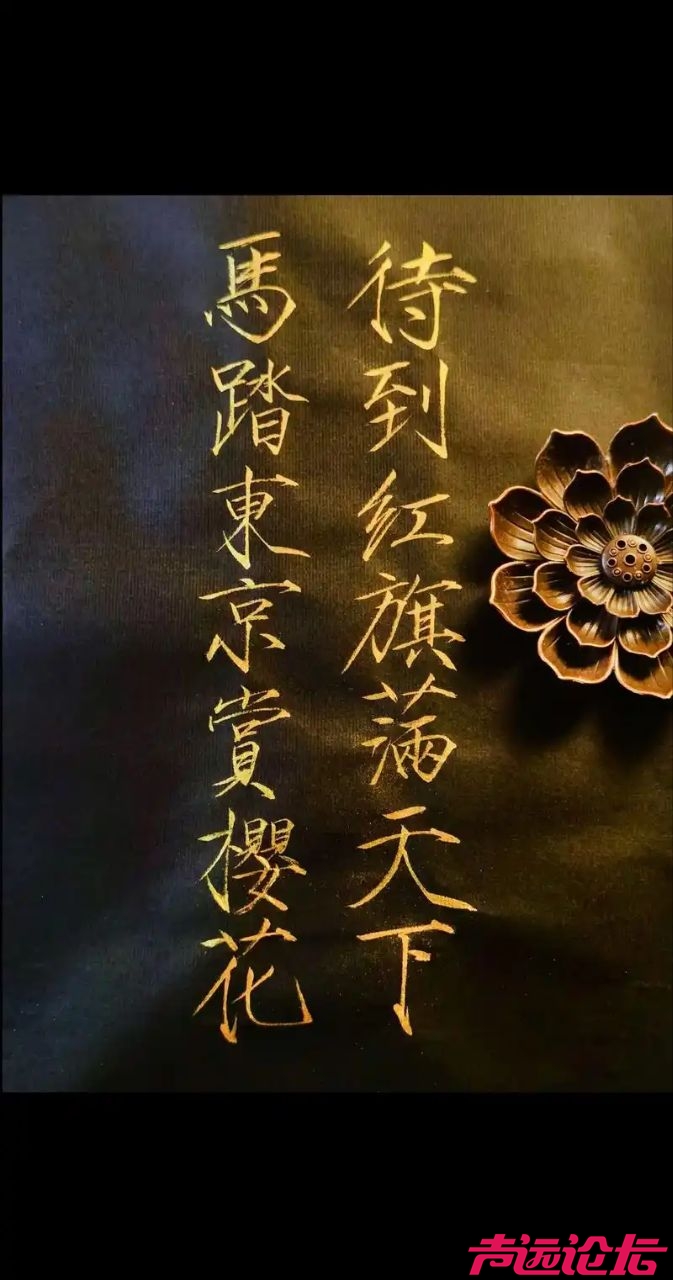 待到红旗萳天下
馬踏東京賞櫻花
声远论坛